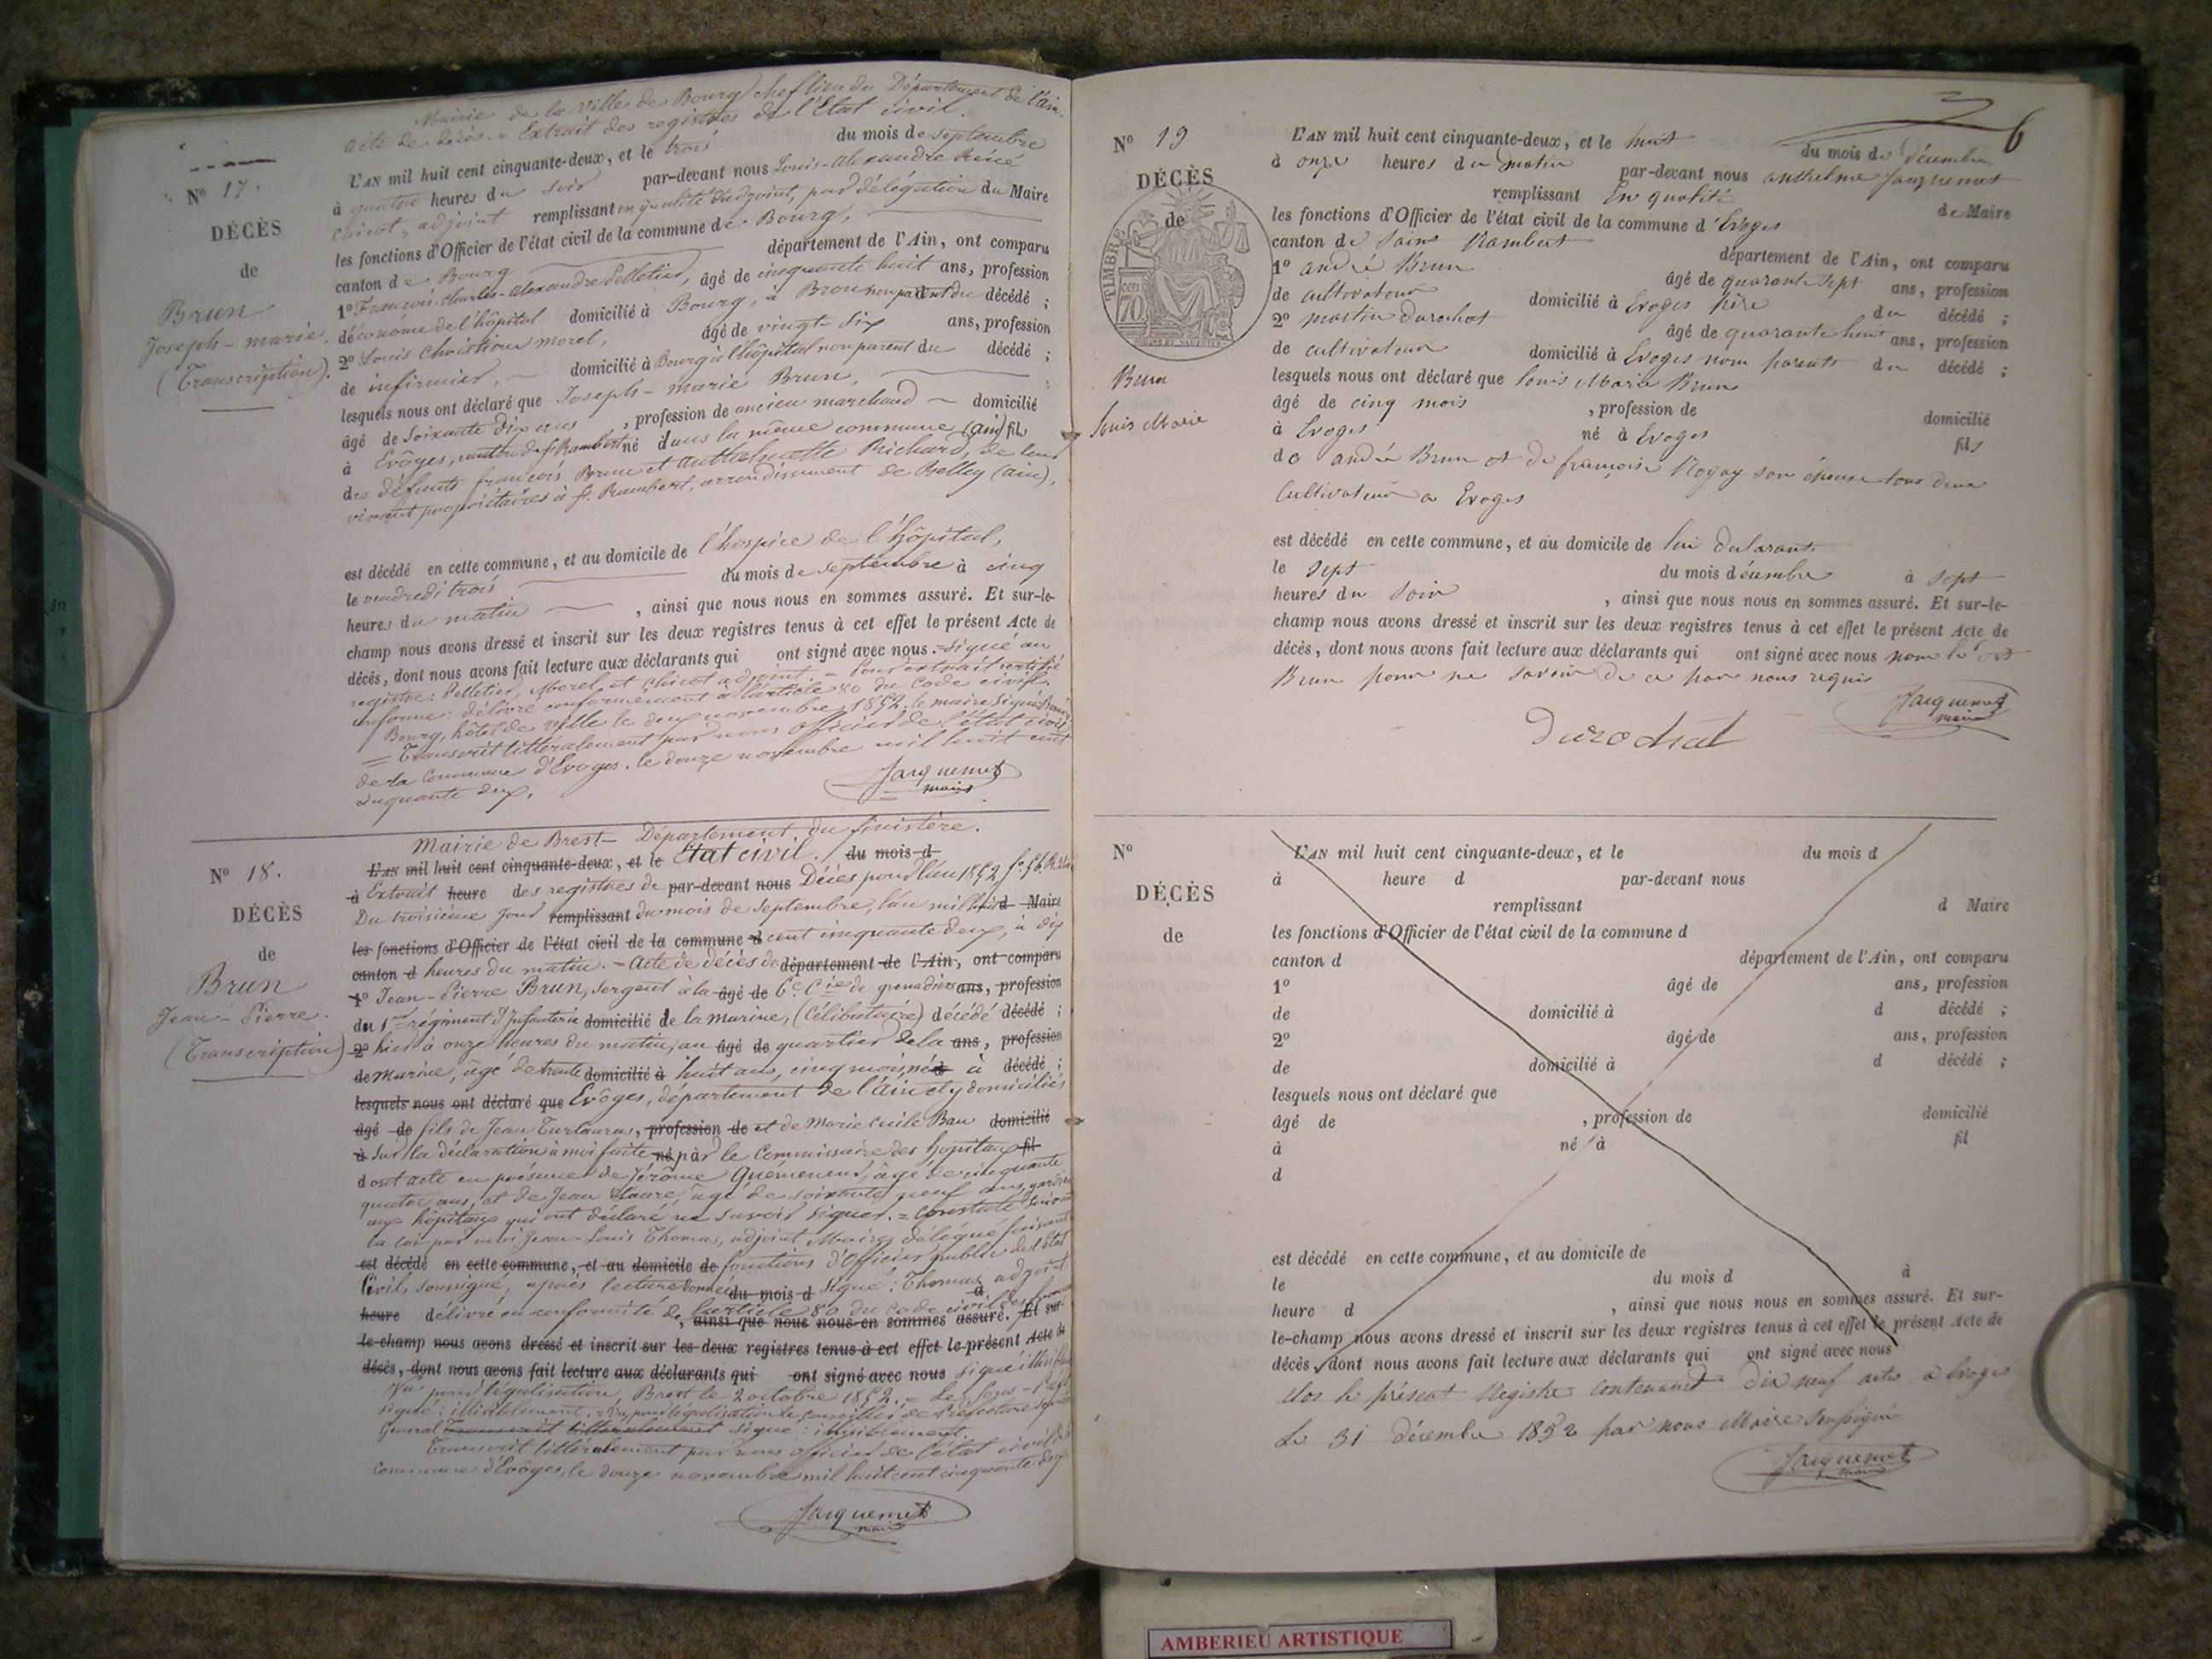 Mairie de la ville de Bourg chef lieu du Département de l'ain.
acte de décès. = Extrait des registres de l'Etat civil.
N° 17.
DÉCÈS
de
Brun
Joseph-marie.
(Transcription).
L'AN mil huit cent cinquante-deux, et le trois du mois de septembre
à quatre heures du soir par-devant nous Louis-Alexandre René
Chicot, adjoint remplissant en qualité d'adjoint, par délégation du Maire
les fonctions d'Officier de l'état civil de la commune de Bourg,
canton de Bourg département de l'Ain, ont comparu
1° François-Charles-alexandre Pelletier, âgé de cinquante huit ans, profession
d'économe de l'hôpital domicilié à Bourg, à Brou non parent du décédé ;
2° Louis Christian morel, âgé de vingt-six ans, profession
de infirmier, domicilié à Bourg à l'hôpital non parent du décédé ;
lesquels nous ont déclaré que Joseph-marie Brun,
âgé de soixante dix ans , profession de ancien marchand domicilié
à Evôges, canton de St Rambert né dans la même commune (ain) fils
des défunts françois Brun et Anthelmette Richard, de leur
vivant propriétaires à St Rambert, arrondissement de Belley (ain),
est décédé en cette commune, et au domicile de l'hospice de l'hôpital,
le vendredi trois du mois de septembre à cinq
heures du matin , ainsi que nous nous en sommes assuré. Et sur-le-
champ nous avons dressé et inscrit sur les deux registres tenus à cet effet le présent Acte de
décès, dont nous avons fait lecture aux déclarants qui ont signé avec nous. = Signé au
registre : Pelletier, Morel et Chicot adjoint. = Pour extrait certifié
conforme : délivré conformément à l'article 80 du Code civil.
Bourg, hôtel de ville le deux novembre 1852. le maire signé
= Transcrit littéralement par nous officier de l'état civil
de la Commune d'Evoges, le douze novembre mil huit cent
cinquante deux.
Jacquemet
maire
Mairie de Brest - Département du finistère.
N° 18.
DÉCÈS
de
Brun
Jean-Pierre.
(Transcription)
L'AN mil huit cent cinquante-deux, et le Etat civil. du mois d
à Extrait heure des registres de par-devant nous Décès pour l'an 1852
Du troisième jour remplissant du mois de septembre, l'an mil huit d Maire
les fonctions d'Officier de l'état civil de la commune d cent cinquante deux, à dix
canton d heures du matin. = Acte de décès de département de l'Ain, ont comparu
1° Jean-Pierre Brun, sergent à la âgé de 6e Cie de grenadiers ans, profession
du 1er régiment d'Infanterie domicilié de la marine, (Célibataire) décédé décédé ;
2° hier à onze heures du matin, au âgé de quartier de la ans, profession
de Marine, âgé de trente domicilié à huit ans, cinq mois, né d à décédé ;
lesquels nous ont déclaré que Evôges, département de l'Ain et y domicilié
âgé de fils de Jean , profession de et de Marie Cecile domicilié
à Sur la déclaration à moi faite né par le Commissaire des hôpitaux fil
dont acte en présence de Jérôme Quémeneur, âgé de cinquante
quatre ans, et de Jean , âgé de soixante neuf ans, gardiens
aux hôpitaux qui ont déclaré ne savoir signer. = Constaté suivant
la loi par moi Jean-Louis Thomas, adjoint Maire délégué faisant
est décédé en cette commune, et au domicile de fonctions d'Officier public de l'état
Civil, soussigné, après lecture donnée du mois d Signé : Thomas adjoint
heure délivré en conformité de l'article 80 du Code civil
, ainsi que nous nous en sommes assuré. Et sur-
le-champ nous avons dressé et inscrit sur les deux registres tenus à cet effet le présent Acte de
décès, dont nous avons fait lecture aux déclarants qui ont signé avec nous signé illisiblement
Vu pour légalisation, Brest le 2 octobre 1852. = Le Sous-Préfet
signé : illisiblement. = Vu pour légalisation le conseiller de Préfecture
General Transcrit littéralement signé : illisiblement.
Transcrit littéralement par nous officier de l'état civil de la
commune d'Evôges, le douze novembre mil huit cent cinquante deux
Jacquemet
maire
6
N° 19
DÉCÈS
de
TIMBRE
70
Brun
Louis Marie
L'AN mil huit cent cinquante-deux, et le huit du mois de décembre
à onze heures du matin par-devant nous anthelme Jacquemet
remplissant En qualité de Maire
les fonctions d'Officier de l'état civil de la commune d'Evoges
canton de Saint Rambert département de l'Ain, ont comparu
1° andré Brun âgé de quarante sept ans, profession
de cultivateur domicilié à Evoges père du décédé ;
2° martin Durochat âgé de quarante huit ans, profession
de cultivateur domicilié à Evoges non parent du décédé ;
lesquels nous ont déclaré que Louis Marie Brun
âgé de cinq mois , profession de domicilié
à Evoges né à Evoges fils
de andré Brun et de françoise Rogay son épouse tous deux
Cultivateur a Evoges
est décédé en cette commune, et au domicile de lui declarant
le sept du mois décembre à sept
heures du soir , ainsi que nous nous en sommes assuré. Et sur-le-
champ nous avons dressé et inscrit sur les deux registres tenus à cet effet le présent Acte de
décès, dont nous avons fait lecture aux déclarants qui ont signé avec nous non le dit
Brun pour ne savoir de ce par nous requis
Jacquemet
maire
Durochat
N°
DÉCÈS
de
L'AN mil huit cent cinquante-deux, et le du mois d
à heure d par-devant nous
remplissant d Maire
les fonctions d'Officier de l'état civil de la commune d
canton d département de l'Ain, ont comparu
1° âgé de ans, profession
de domicilié à d décédé ;
2° âgé de ans, profession
de domicilié à d décédé ;
lesquels nous ont déclaré que
âgé de , profession de domicilié
à né à fil
d
est décédé en cette commune, et au domicile de
le du mois d à
heure d , ainsi que nous nous en sommes assuré. Et sur-
le-champ nous avons dressé et inscrit sur les deux registres tenus à cet effet le présent Acte de
décès, dont nous avons fait lecture aux déclarants qui ont signé avec nous
Clos le présent Registre contenant dix neuf actes a Evoges
Le 31 décembre 1852 par nous Maire Soussigné
Jacquemet
maire
AMBERIEU ARTISTIQUE